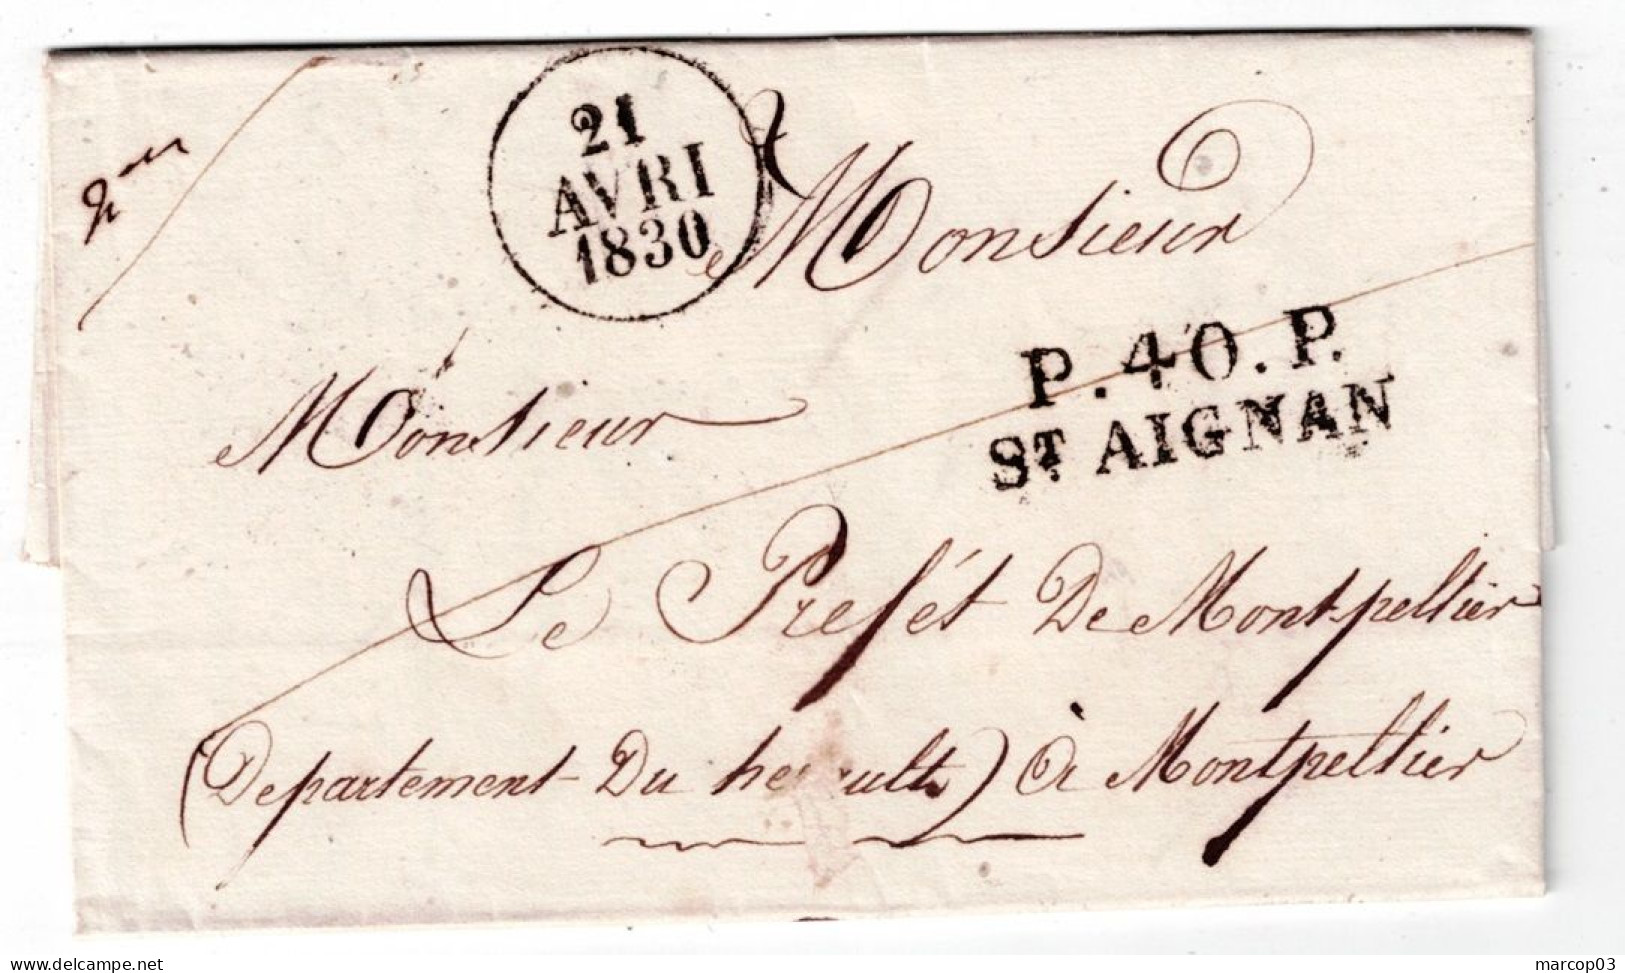 21
AVRI
1830
Monsieur
P.40.P.
ST. AIGNAN
Monsieur
Le Prefét De Montpellier
(Departement Du herault) à Montpellier
delcampe.net
marcop03